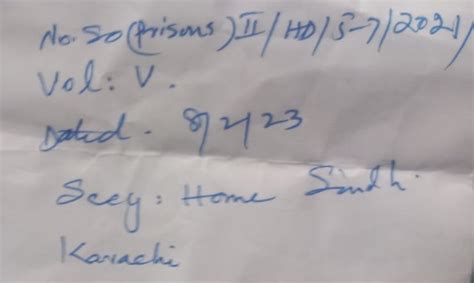 No. SO (Prisons) II/HD/5-7/2021/
Vol: V.
Dated. 8/2/23
Secy: Home Sindh.
Karachi